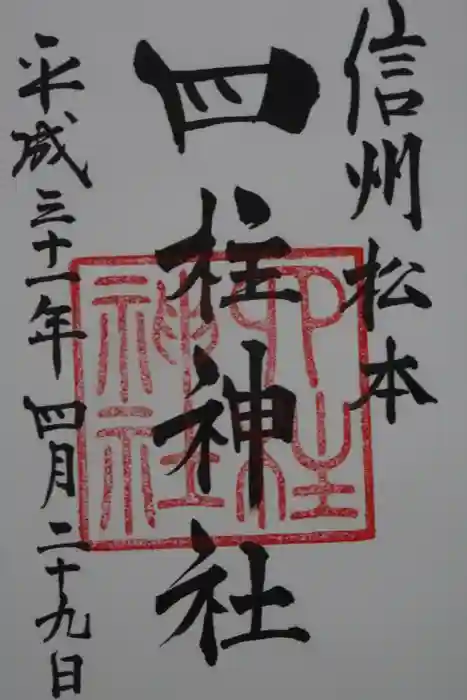 信州松本
四柱神社
平成三十一年四月二十九日
四柱
神社